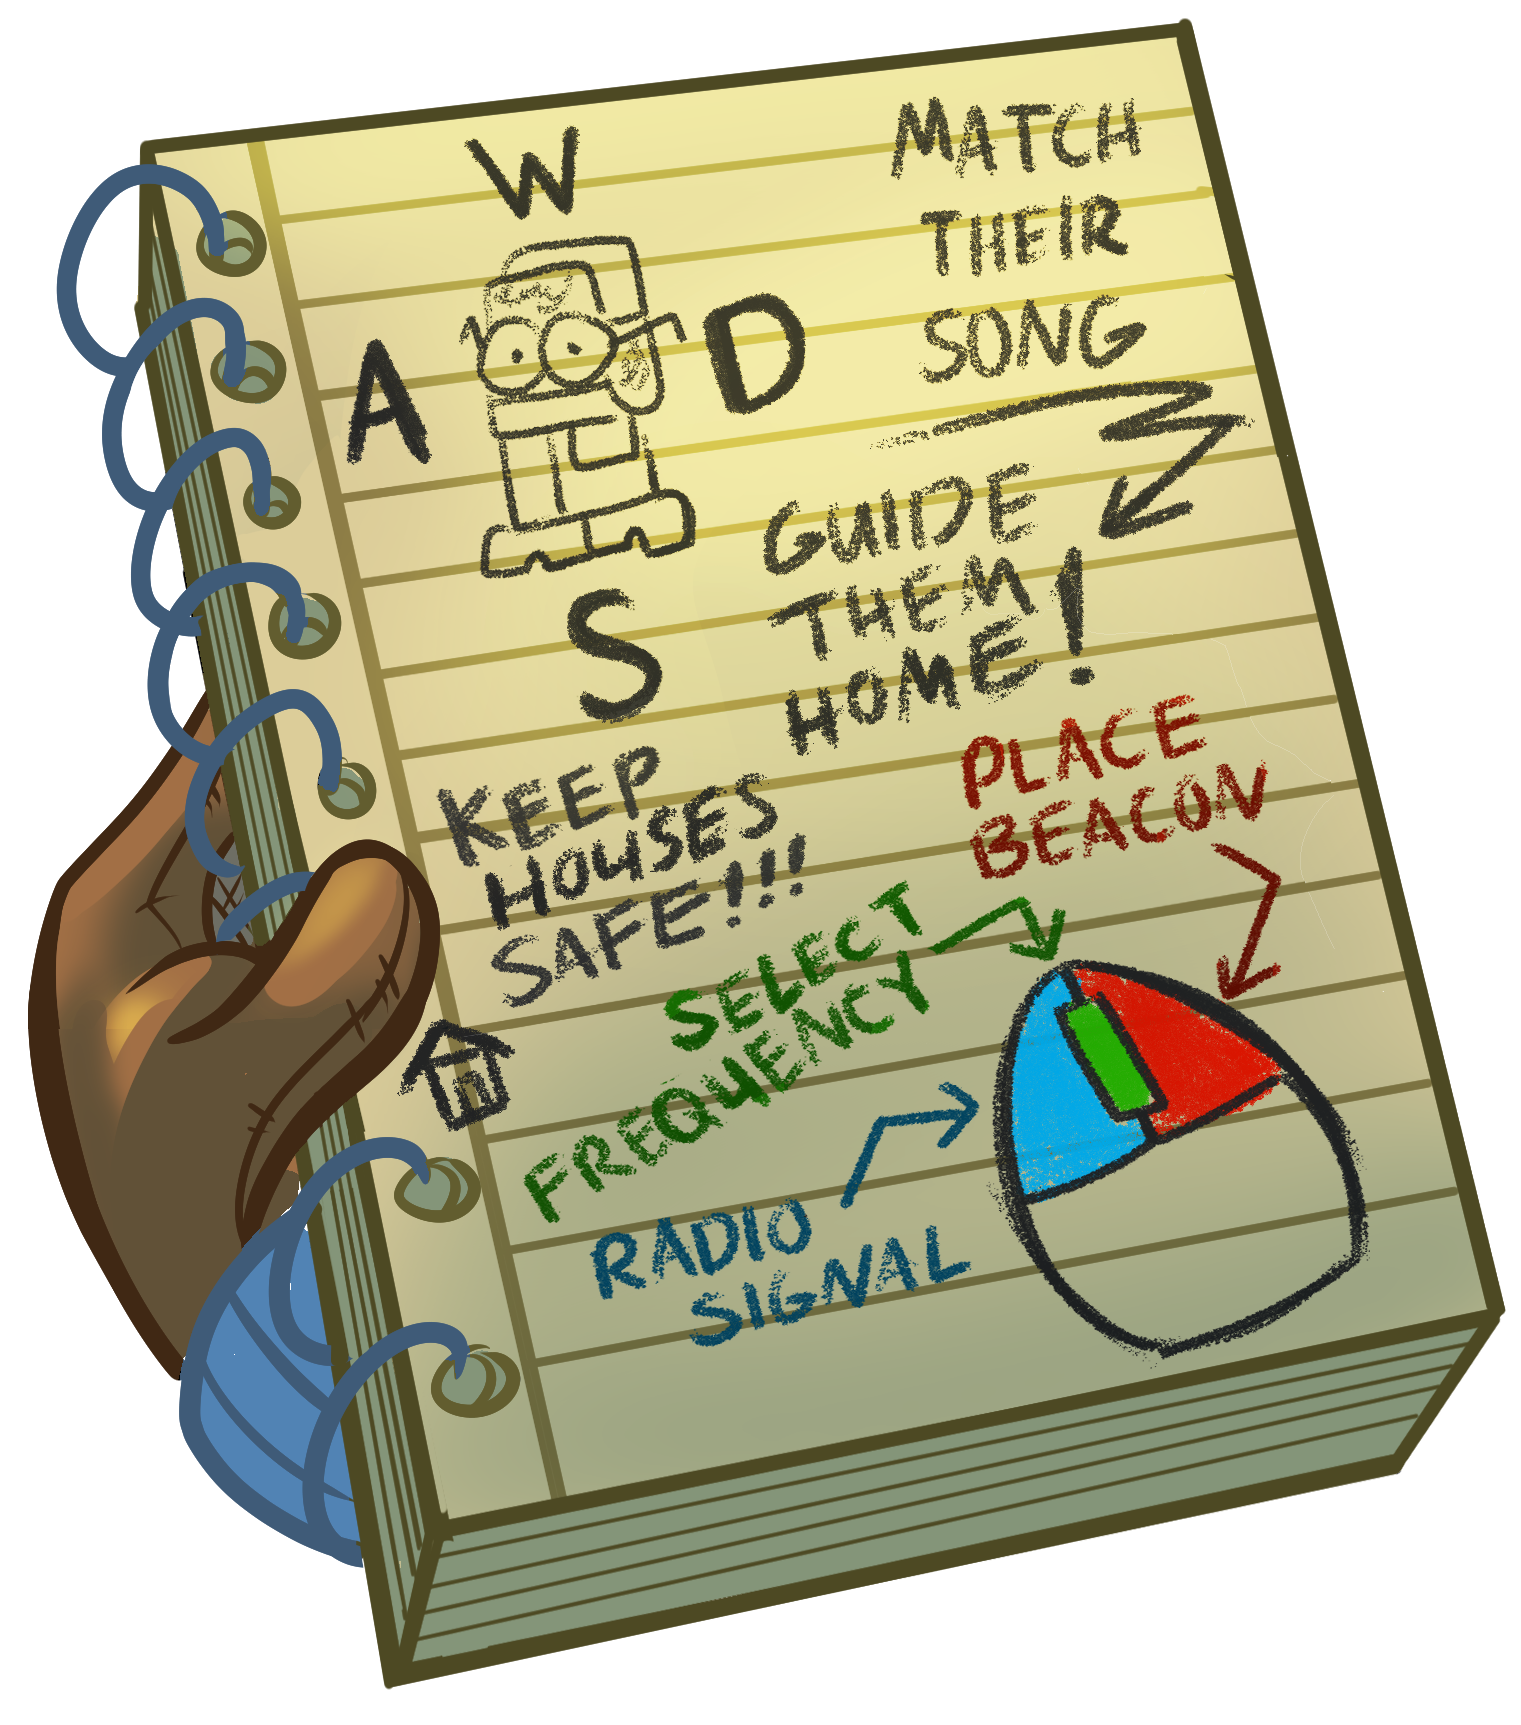 W
A
D
S
MATCH
THEIR
SONG
GUIDE
THEM
HOME!
KEEP
HOUSES
SAFE!!!
PLACE
BEACON
SELECT
FREQUENCY
RADIO
SIGNAL